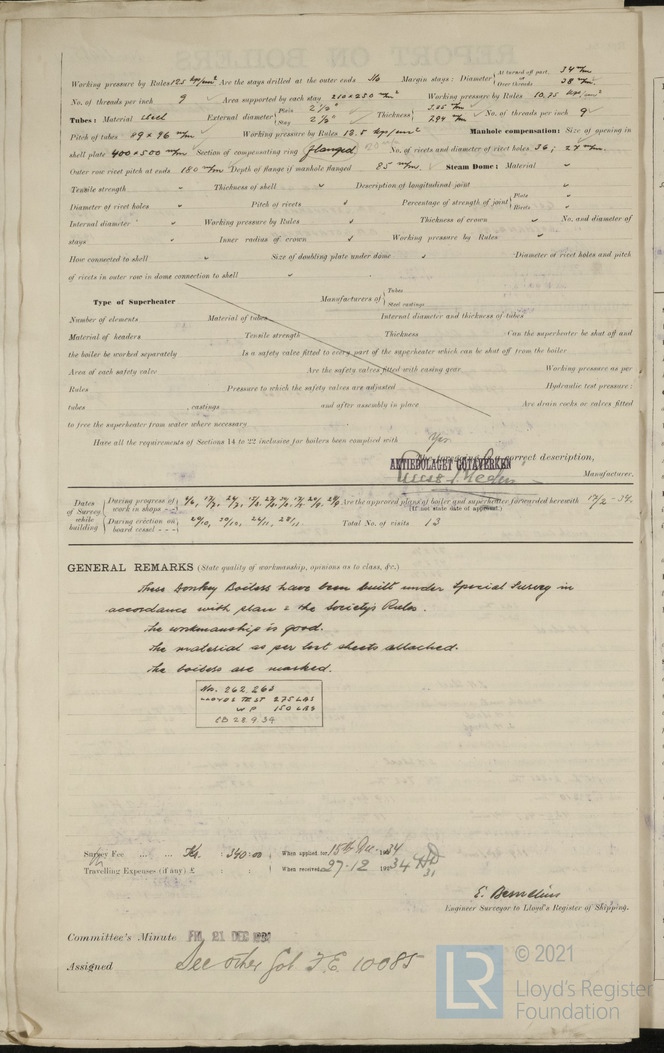 Working pressure by Rules 12.5 kgs/cm² Are the stays drilled at the outer ends No Margin stays: Diameter { At turned off part, 34 m/m or Over threads 38 m/m
No. of threads per inch 9 Area supported by each stay 210×250 m² Working pressure by Rules 10.75 kgs/cm²
Tubes: Material Steel External diameter { Plain 2 1/2" Stay 2 1/2" Thickness { 3.25 m/m 7.94 m/m No. of threads per inch 9
Pitch of tubes 89 × 96 m/m Working pressure by Rules 18.5 kgs/cm² Manhole compensation: Size of opening in
shell plate 400×500 m/m Section of compensating ring flanged No. of rivets and diameter of rivet holes 36; 27 m/m.
Outer row rivet pitch at ends 180 m/m Depth of flange if manhole flanged 85 m/m Steam Dome: Material
Tensile strength Thickness of shell Description of longitudinal joint
Diameter of rivet holes Pitch of rivets Percentage of strength of joint { Plate Rivets
Internal diameter Working pressure by Rules Thickness of crown No. and diameter of
stays Inner radius of crown Working pressure by Rules
How connected to shell Size of doubling plate under dome Diameter of rivet holes and pitch
of rivets in outer row in dome connection to shell
Type of Superheater Manufacturers of { Tubes Steel castings
Number of elements Material of tubes Internal diameter and thickness of tubes
Material of headers Tensile strength Thickness Can the superheater be shut off and
the boiler be worked separately Is a safety valve fitted to every part of the superheater which can be shut off from the boiler
Area of each safety valve Are the safety valves fitted with easing gear Working pressure as per
Rules Pressure to which the safety valves are adjusted Hydraulic test pressure:
tubes , castings and after assembly in place Are drain cocks or valves fitted
to free the superheater from water where necessary
Have all the requirements of Sections 14 to 22 inclusive for boilers been complied with Yes
The foregoing is a correct description,
AKTIEBOLAGET GÖTAVERKEN
Manufacturer.
Dates of Survey while building { During progress of work in shops - - Are the approved plans of boiler and superheater forwarded herewith 17/2 - 34.
(If not state date of approval.)
During erection on board vessel - - - Total No. of visits 13
GENERAL REMARKS (State quality of workmanship, opinions as to class, &c.)
These Donkey Boilers have been built under Special Survey in
accordance with plan & the Society's Rules.
The workmanship is good.
The material as per test sheets attached.
The boilers are marked.
No. 262 263
LLOYDS TEST 275 LBS
WP 150 LBS
EB 28.9.34
Survey Fee ... ... Kr. : 340:00 : When applied for, 15th Dec. 1934
Travelling Expenses (if any) £ : : When received, 27-12 1934
E. Bendelius
Engineer Surveyor to Lloyd's Register of Shipping.
Committee's Minute FRI. 21 DEC 1934
Assigned See other Got F.E. 10085
LR © 2021
Lloyd's Register
Foundation